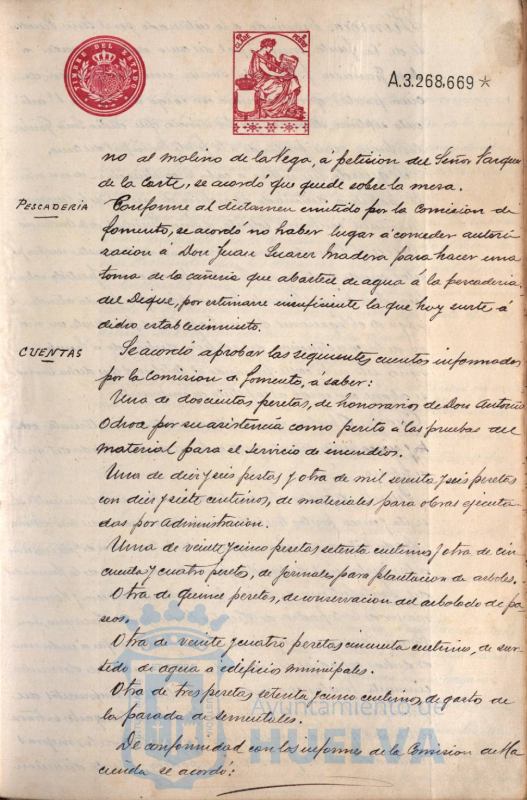 TIMBRE DEL ESTADO
A.3.268.669 *
no al molino de la Vega, á peticion del Señor Vazquez
de la Corte, se acordó que quede sobre la mesa.
PESCADERIA
Conforme al dictamen emitido por la Comision de
fomento, se acordó no haber lugar á conceder autori
zacion á Don Juan Suarez Madera para hacer una
toma de la cañeria que abastece de agua á la pescaderia
del Dique, por estimarse insuficiente la que hoy surte á
dicho establecimiento.
CUENTAS
Se acordó aprobar las siguientes cuentas informadas
por la Comision de fomento, á saber:
Una de doscientas pesetas, de honorarios de Don Antonio
por su asistencia como perito á las pruebas del
material para el servicio de incendios.
Una de diez y seis pestas y otra de mil setenta y seis pesetas
con diez y siete centimos, de materiales para obras ejecuta-
das por administracion.
Una de veinte y cinco pesetas setenta centimos y otra de cin
cuenta y cuatro pesetas, de jornales para plantacion de arboles.
Otra de quince pesetas, de conservacion del arbolado de pa
seos.
Otra de veinte y cuatro pesetas cincuenta centimos, de sur-
tido de agua á edificios municipales.
Otra de tres pesetas setenta y cinco centimos, de gastos de
la parada de sementales.
De conformidad con los informes de la Comision de Ha
cienda se acordó:
Ayuntamiento de
HUELVA